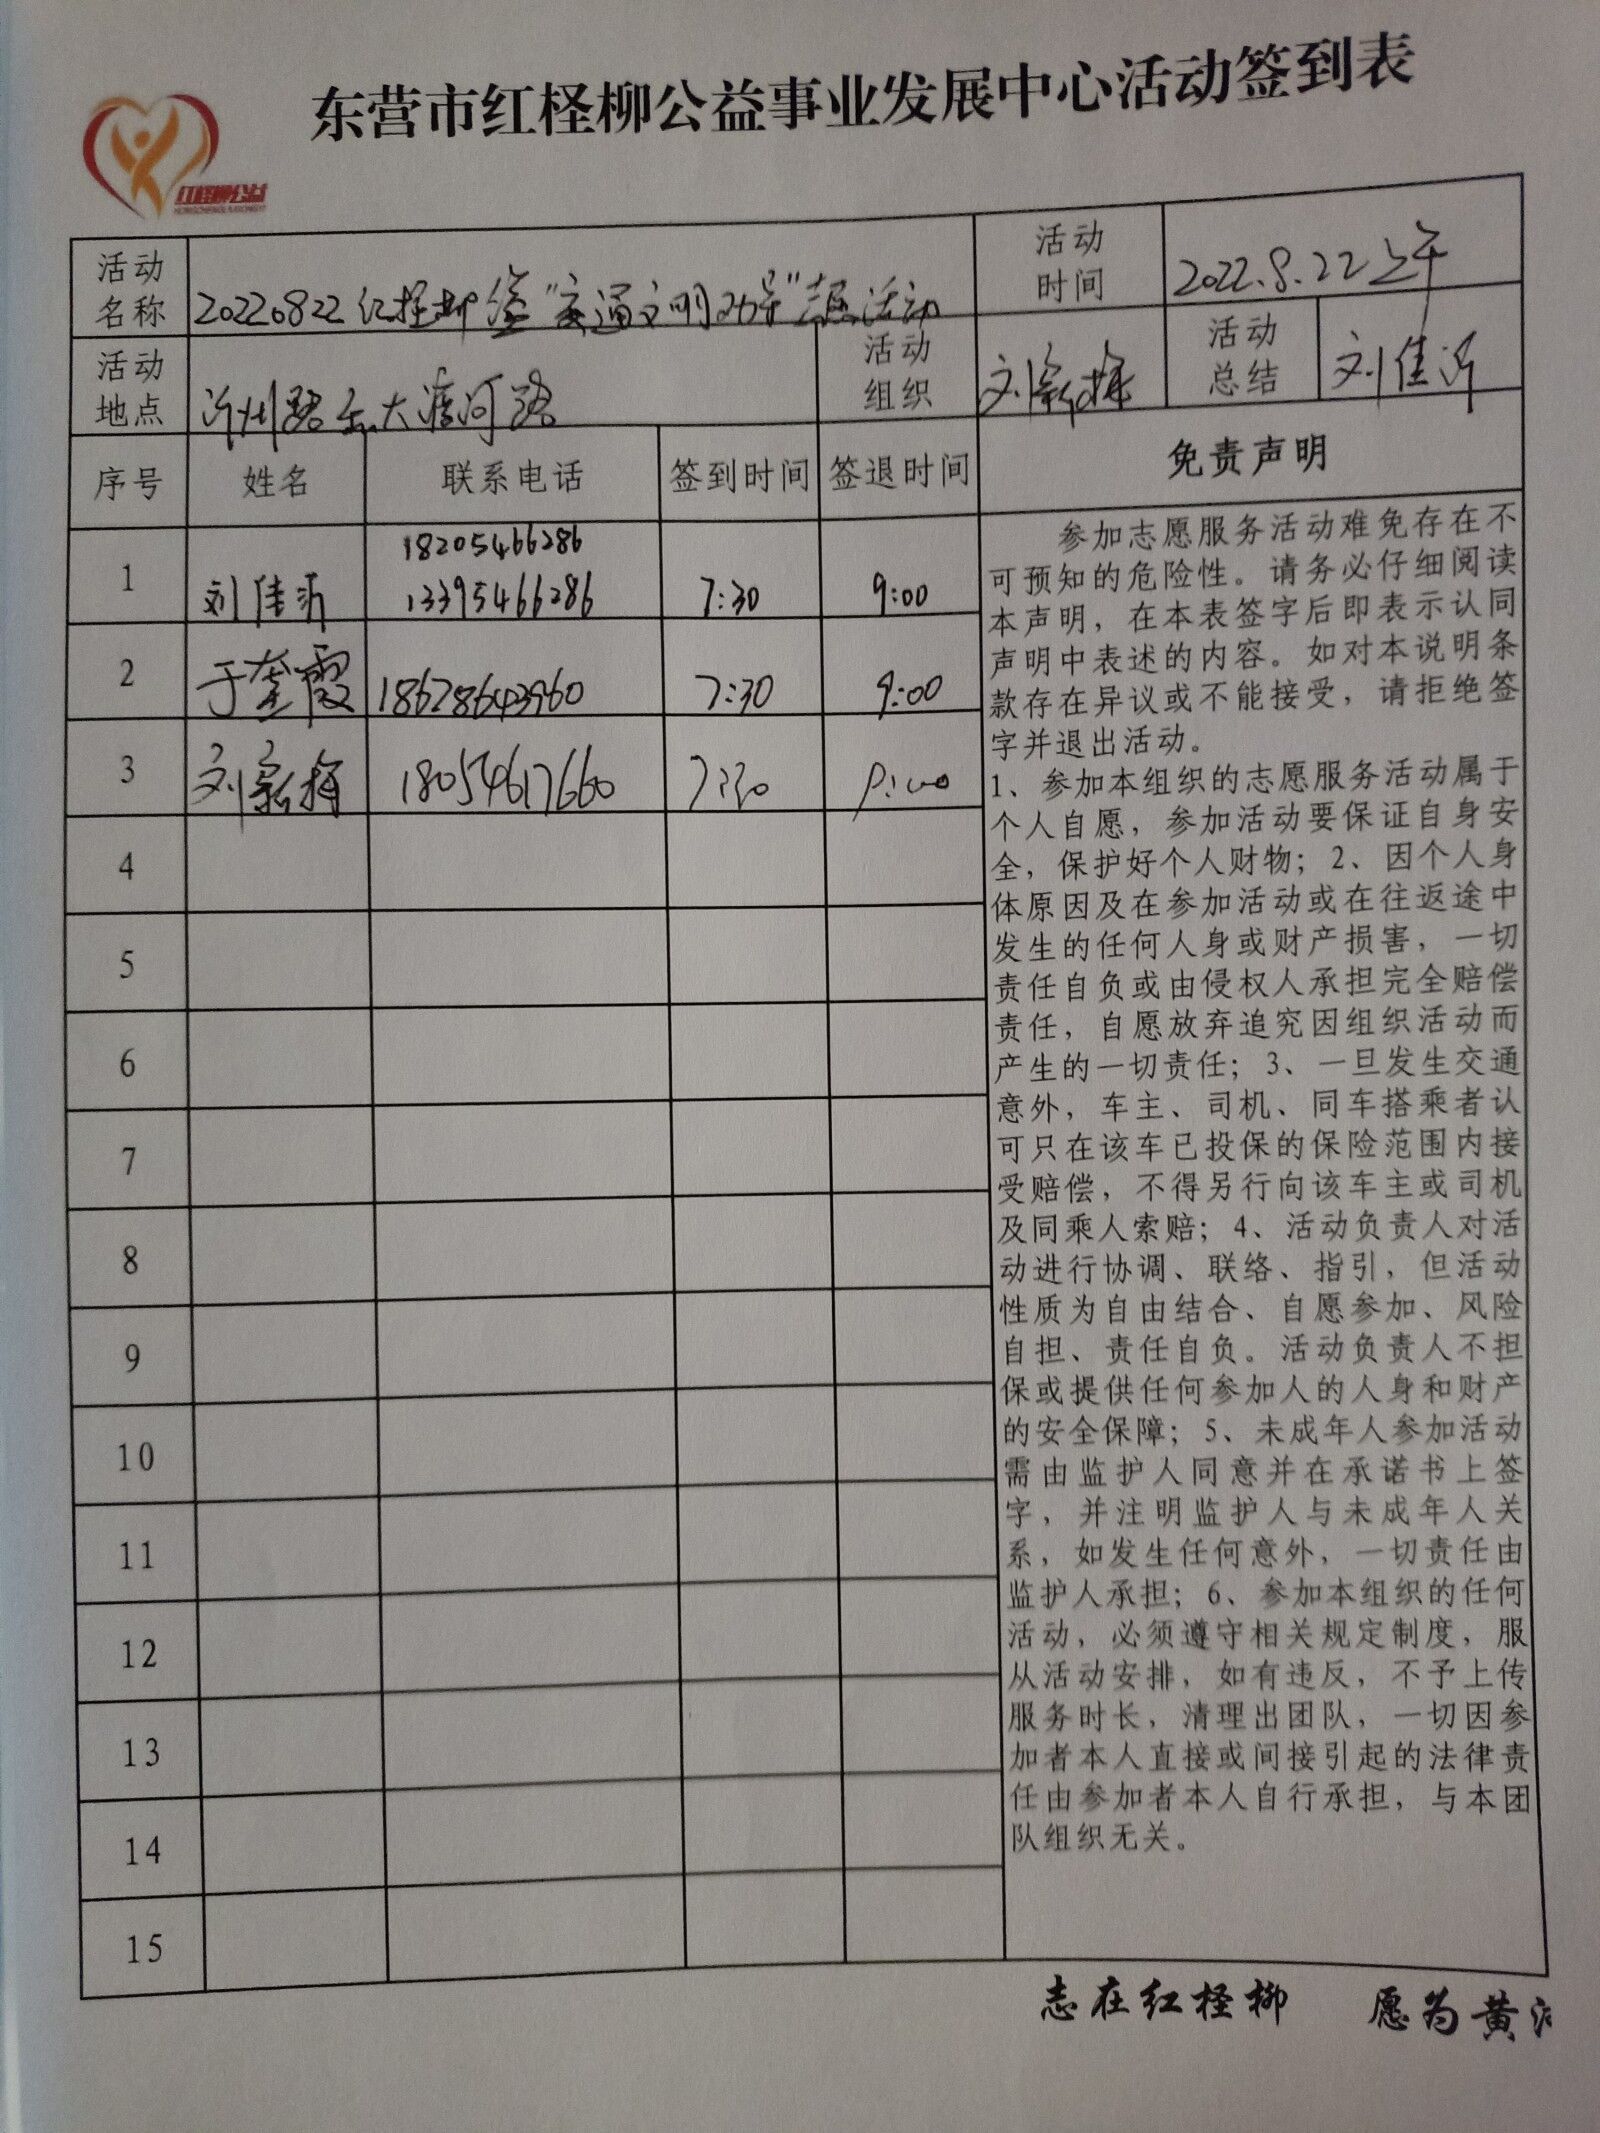 东营市红柽柳公益事业发展中心活动签到表
红柽柳公益
活动名称 20220822红柽柳 "交通文明劝导"志愿活动 活动时间 2022.8.22上午
活动地点 沂州路 大渡河路 活动组织 刘新梅 活动总结 刘佳沂
序号 姓名 联系电话 签到时间 签退时间 免责声明
18205466286
1 刘佳沂 13395466286 7:30 9:00
2 于奎霞 18678643960 7:30 9:00
3 刘新梅 18054617660 7:30 9:00
4
5
6
7
8
9
10
11
12
13
14
15
参加志愿服务活动难免存在不
可预知的危险性。请务必仔细阅读
本声明，在本表签字后即表示认同
声明中表述的内容。如对本说明条
款存在异议或不能接受，请拒绝签
字并退出活动。
1、参加本组织的志愿服务活动属于
个人自愿，参加活动要保证自身安
全，保护好个人财物；2、因个人身
体原因及在参加活动或在往返途中
发生的任何人身或财产损害，一切
责任自负或由侵权人承担完全赔偿
责任，自愿放弃追究因组织活动而
产生的一切责任；3、一旦发生交通
意外，车主、司机、同车搭乘者认
可只在该车已投保的保险范围内接
受赔偿，不得另行向该车主或司机
及同乘人索赔；4、活动负责人对活
动进行协调、联络、指引，但活动
性质为自由结合、自愿参加、风险
自担、责任自负。活动负责人不担
保或提供任何参加人的人身和财产
的安全保障；5、未成年人参加活动
需由监护人同意并在承诺书上签
字，并注明监护人与未成年人关
系，如发生任何意外，一切责任由
监护人承担；6、参加本组织的任何
活动，必须遵守相关规定制度，服
从活动安排，如有违反，不予上传
服务时长，清理出团队，一切因参
加者本人直接或间接引起的法律责
任由参加者本人自行承担，与本团
队组织无关。
志在红柽柳 愿为黄